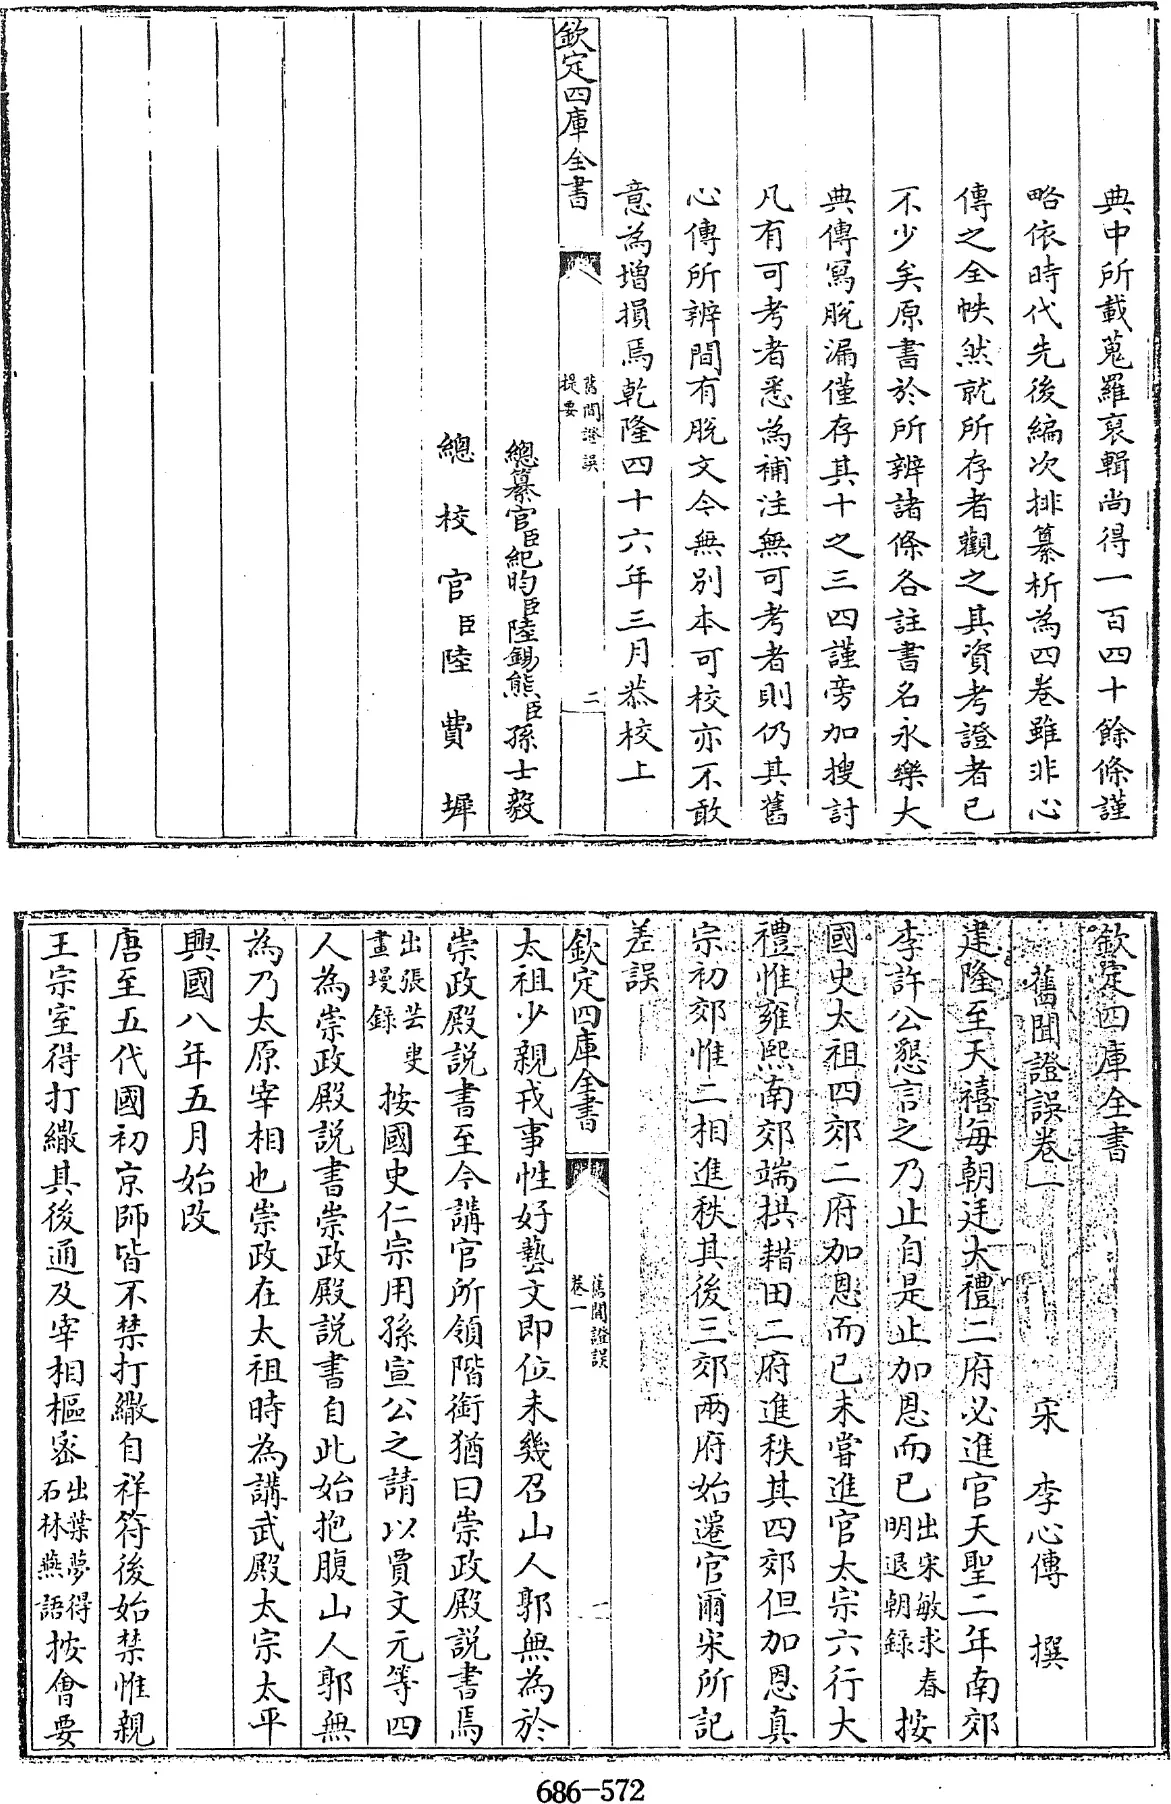 典中所載蒐羅裒輯尚得一百四十餘條謹
略依時代先後編次排纂析為四卷雖非心
傳之全帙然就所存者觀之其資考證者已
不少矣原書於所辨諸條各註書名永樂大
典傳寫脫漏僅存其十之三四謹旁加搜討
凡有可考者悉為補注無可考者則仍其舊
心傳所辨間有脫文今無別本可校亦不敢
意為增損焉乾隆四十六年三月恭校上
欽定四庫全書
舊聞證誤
提要
二
總纂官臣紀昀臣陸錫熊臣孫士毅
總校官臣陸費墀
欽定四庫全書
舊聞證誤卷一
宋 李心傳 撰
建隆至天禧每朝廷大禮二府必進官天聖二年南郊
李許公懇言之乃止自是止加恩而已出宋敏求春明退朝錄按
國史太祖四郊二府加恩而已未嘗進官太宗六行大
禮惟雍熙南郊端拱耤田二府進秩其四郊但加恩真
宗初郊惟二相進秩其後三郊兩府始遷官爾宋所記
差誤
欽定四庫全書
舊聞證誤
卷一
一
太祖少親戎事性好藝文即位未幾召山人郭無為於
崇政殿説書至今講官所領階銜猶曰崇政殿説書焉
出張芸叟畫墁録按國史仁宗用孫宣公之請以賈文元等四
人為崇政殿説書崇政殿説書自此始抱腹山人郭無
為乃太原宰相也崇政在太祖時為講武殿太宗太平
興國八年五月始改
唐至五代國初京師皆不禁打繖自祥符後始禁惟親
王宗室得打繖其後通及宰相樞密出葉夢得石林燕語按會要
686-572